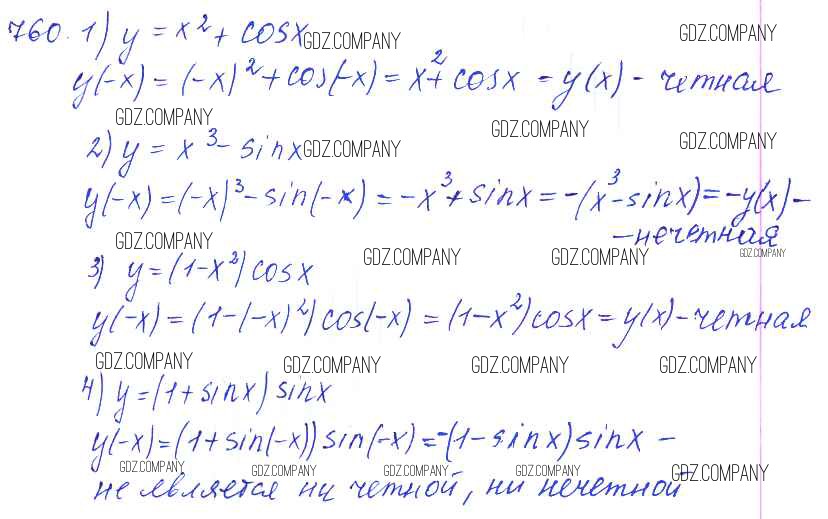 760. 1) y = x² + cosx GDZ.COMPANY GDZ.COMPANY
y(-x) = (-x)² + cos(-x) = x² + cosx = y(x) - четная
GDZ.COMPANY GDZ.COMPANY GDZ.COMPANY
2) y = x³ - sinx GDZ.COMPANY
y(-x) = (-x)³ - sin(-x) = -x³ + sinx = -(x³ - sinx) = -y(x) -
- нечетная
GDZ.COMPANY GDZ.COMPANY GDZ.COMPANY GDZ.COMPANY
3) y = (1-x²) cosx
y(-x) = (1-(-x)²) cos(-x) = (1-x²) cosx = y(x) - четная
GDZ.COMPANY GDZ.COMPANY GDZ.COMPANY GDZ.COMPANY
4) y = (1 + sinx) sinx
y(-x) = (1 + sin(-x)) sin(-x) = -(1 - sinx) sinx -
GDZ.COMPANY GDZ.COMPANY GDZ.COMPANY GDZ.COMPANY GDZ.COMPANY
не является ни четной, ни нечетной